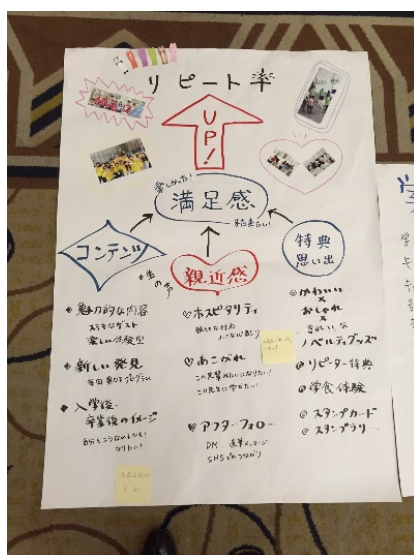 リピート率
UP!
楽しかった!
満足感
また来たい!
コンテンツ
生の声
親近感
特典
思い出
魅力的な内容
楽しい体験型
新しい発見
毎回異なるプログラム
入学後
卒業後のイメージ
なりたい!
ホスピタリティ
あこがれ
この先輩みたいになりたい!
アフターフォロー
DM
SNSでのつながり
かわいい
×
おしゃれ
×
きれいな
ノベルティグッズ
リピーター特典
学食体験
スタンプカード
スタンプラリー